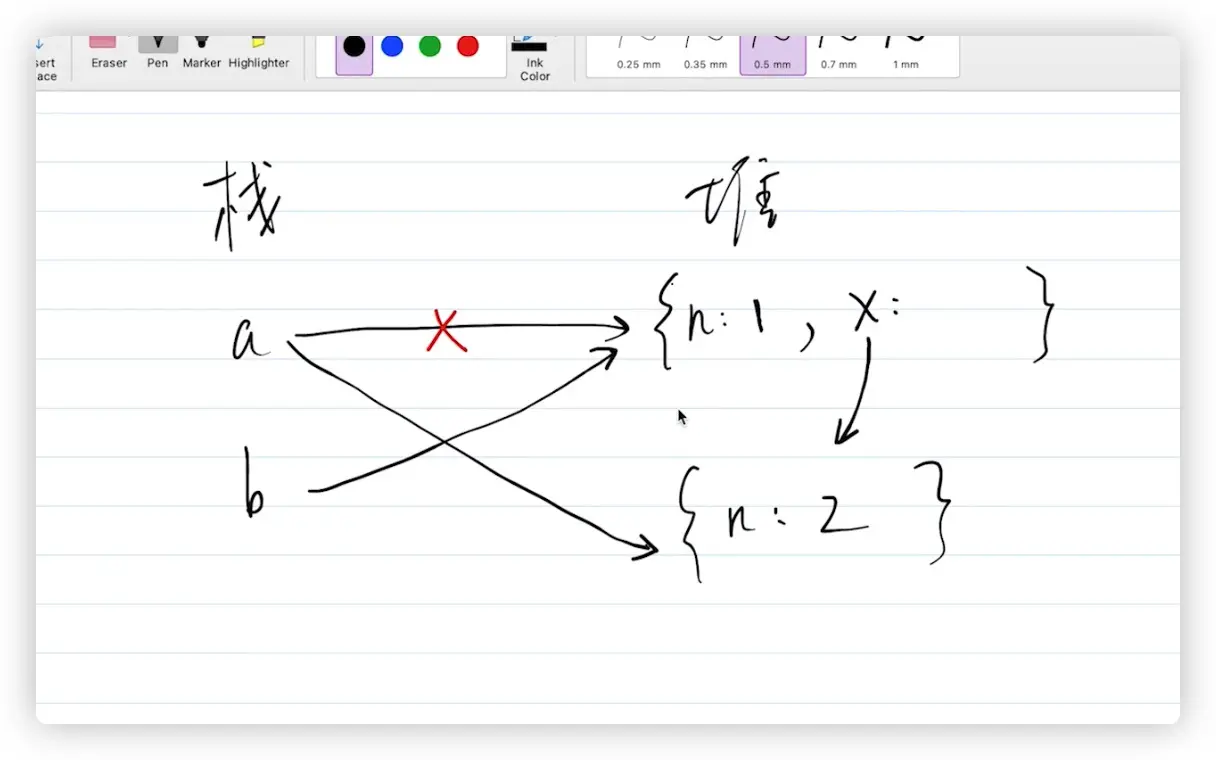 Eraser Pen Marker Highlighter Ink Color 0.25 mm 0.35 mm 0.5 mm 0.7 mm 1 mm
栈 堆
a {n: 1, x: }
b
{n: 2 }